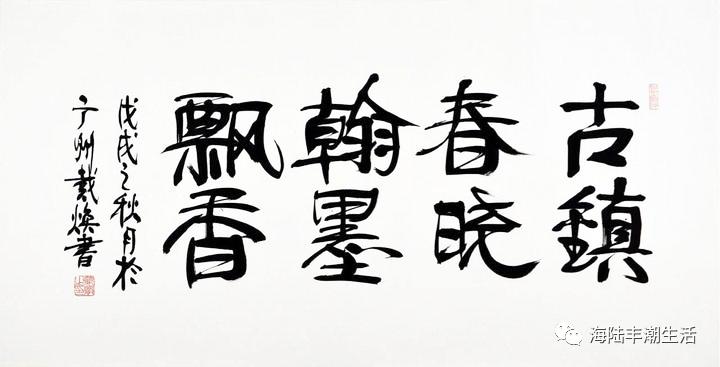 古鎮
春晓
翰墨
飘香
戊戌之秋月於
广州戴焕書
海陆丰潮生活